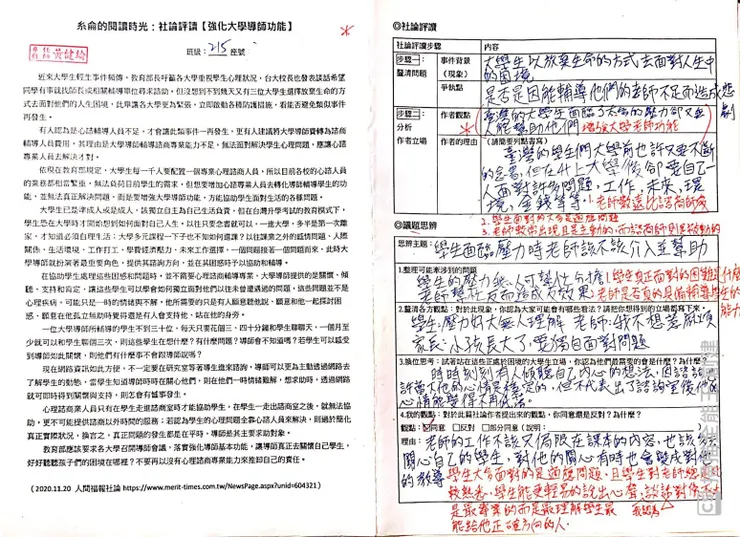 糸侖的閱讀時光：社論評讀【強化大學導師功能】
班級：215 座號
近來大學生輕生事件頻傳，教育部長呼籲各大學重視學生心理狀況，台大校長也發表談話希望
同學有事就找師長或相關輔導單位尋求談助。但沒想到不到幾天又有三位大學生選擇放棄生命的方
式去面對他們的人生困境，此舉讓各大學更為緊張，立即啟動各種防護措施，看能否避免類似事件
再發生。
有人認為是心諮輔導人員不足，才會讓此類事件一再發生，更有人建議將大學導師費轉為諮商
輔導人員費用，其理由是大學導師輔導諮商專業能力不足，無法面對解決學生心理問題，應讓心諮
專業人員去解決才對。
依現在教育部規定，大學生每一千人要配置一個專業心理諮商人員，所以目前各校的心諮人員
的業務都相當繁重，無法負荷目前學生的需求，但想要增加心諮專業人員去轉化導師輔導學生的功
能，並無法真正解決問題，而是要增強大學導師功能，方能協助學生面對生活的各種問題。
大學生已是準成人或是成人，該獨立自主為自己生活負責，但在台灣升學考試的教育模式下，
學生恐在大學時才開始想到如何面對自己人生，以往只要念書就可以，一進大學，多半是第一次離
家，才知道必須自理生活；大學多元課程一下子也不知如何選課？以往課業之外的感情問題、人際
關係、生活環境、工作打工、學費經濟壓力、未來工作選擇，一個問題接著一個問題而來，此時大
學導師就扮演著最重要角色，提供其諮詢方向，並在其困惑時予以協助和輔導。
在協助學生處理這些困惑和問題時，並不需要心理諮商輔導專業，大學導師提供的是關懷、傾
聽、支持和肯定，讓這些學生可以學會如何獨立面對他們以往未曾遭遇過的問題，這些問題並不是
心理疾病，可能只是一時的情緒與不解，他所需要的只是有人願意聽他說、願意和他一起探討困
惑、願意在他孤立無助時覺得還是有人會支持他、站在他的身旁。
一位大學導師所輔導的學生不到三十位，每天只要花個三、四十分鐘和學生聊聊天，一個月至
少就可以和學生聊個三次，則這些學生在想什麼？有什麼問題？導師會不知道嗎？若學生可以感受
到導師如此關懷，則他們有什麼事不會跟導師說嗎？
現在網路資訊如此方便，不一定要在研究室等著導生進來諮詢，導師可以更為主動透過網路去
了解學生的動態，當學生知道導師時時在關心他們，則在他們一時情緒難解，想求助時，透過網路
就可同時得到關懷與支持，則怎會有憾事發生。
心理諮商專業人員只有在學生走進諮商室時才能協助學生，在學生一走出諮商室之後，就無法協
助，更不可能提供諮商以外時間的服務；若認為學生的心理問題全靠心諮人員來解決，則過於簡化
真正實際狀況，換言之，真正問題的發生都是在平時，導師是其主要求助對象。
教育部應該要求各大學召開導師會議，落實強化導師基本功能，讓導師真正去關懷自己學生，
好好聽聽孩子們的困境在哪裡？不要再以沒有心理諮商專業能力來推卸自己的責任。
（2020.11.20 人間福報社論 https://www.merit-times.com.tw/NewsPage.aspx?unid=604321）
◎社論評讀
社論評讀步驟 內容
步驟一：釐清問題
事件背景（現象）
大學生以放棄生命的方式去面對人生中的困境
爭執點
是否是因能輔導他們的老師不足而造成悲劇
步驟二：分析作者立場
作者觀點
臺灣的大學生面臨了太多的壓力卻又無人能幫助他們 增強大學老師功能
作者的理由
（請簡要列點書寫）
臺灣的學生們大學前也許只要不斷的念書，但在升上大學後卻要自己一人面對許多問題，工作，未來，環境，金錢等等！
1.老師數遠比諮商師多
2.學生面對的大多是適應問題
◎議題思辨
思辨主題：學生面臨壓力時老師該不該介入並幫助
1.整理可能牽涉到的問題
學生的壓力無人可幫忙分擔
2.釐清各方觀點：對於此現象，你認為大家可能會有哪些看法？請把你想得到的立場都寫下來。
學生：壓力好大無人理解 老師：我不想要處煩
家長：小孩長大了要獨自面對問題
3.換位思考：試著站在這些正處於困境的大學生立場，你認為他們最需要的會是什麼？為什麼？
時時刻刻有人傾聽自己內心的想法，因諮詢
4.我的觀點：對於此篇社論作者提出來的觀點，你同意還是反對？為什麼？
☑同意 □反對 □部分同意（說明：
理由：老師的工作不該只侷限在課本的內容，也該多去
關心自己的學生，對他的關心有時也會變成對他
的救導
學生大多面對的是適應問題，且學生對老師想是比
較熟悉，學生能更輕易的說出心聲，諮詢對象不
是最專業的而是最理解學生最
能給他正確方向的人。